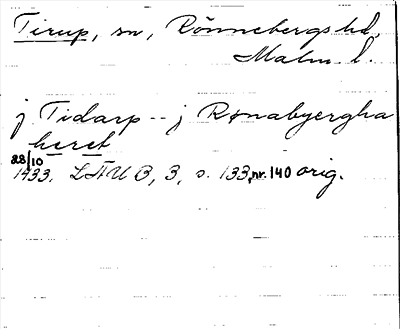 Tirup, sn, Rönnebergs hd,
Malm. l.
j Tidarp -- j Rønabyergha
heret
28/10
1433. LÄU B, 3, s. 133, nr. 140 orig.